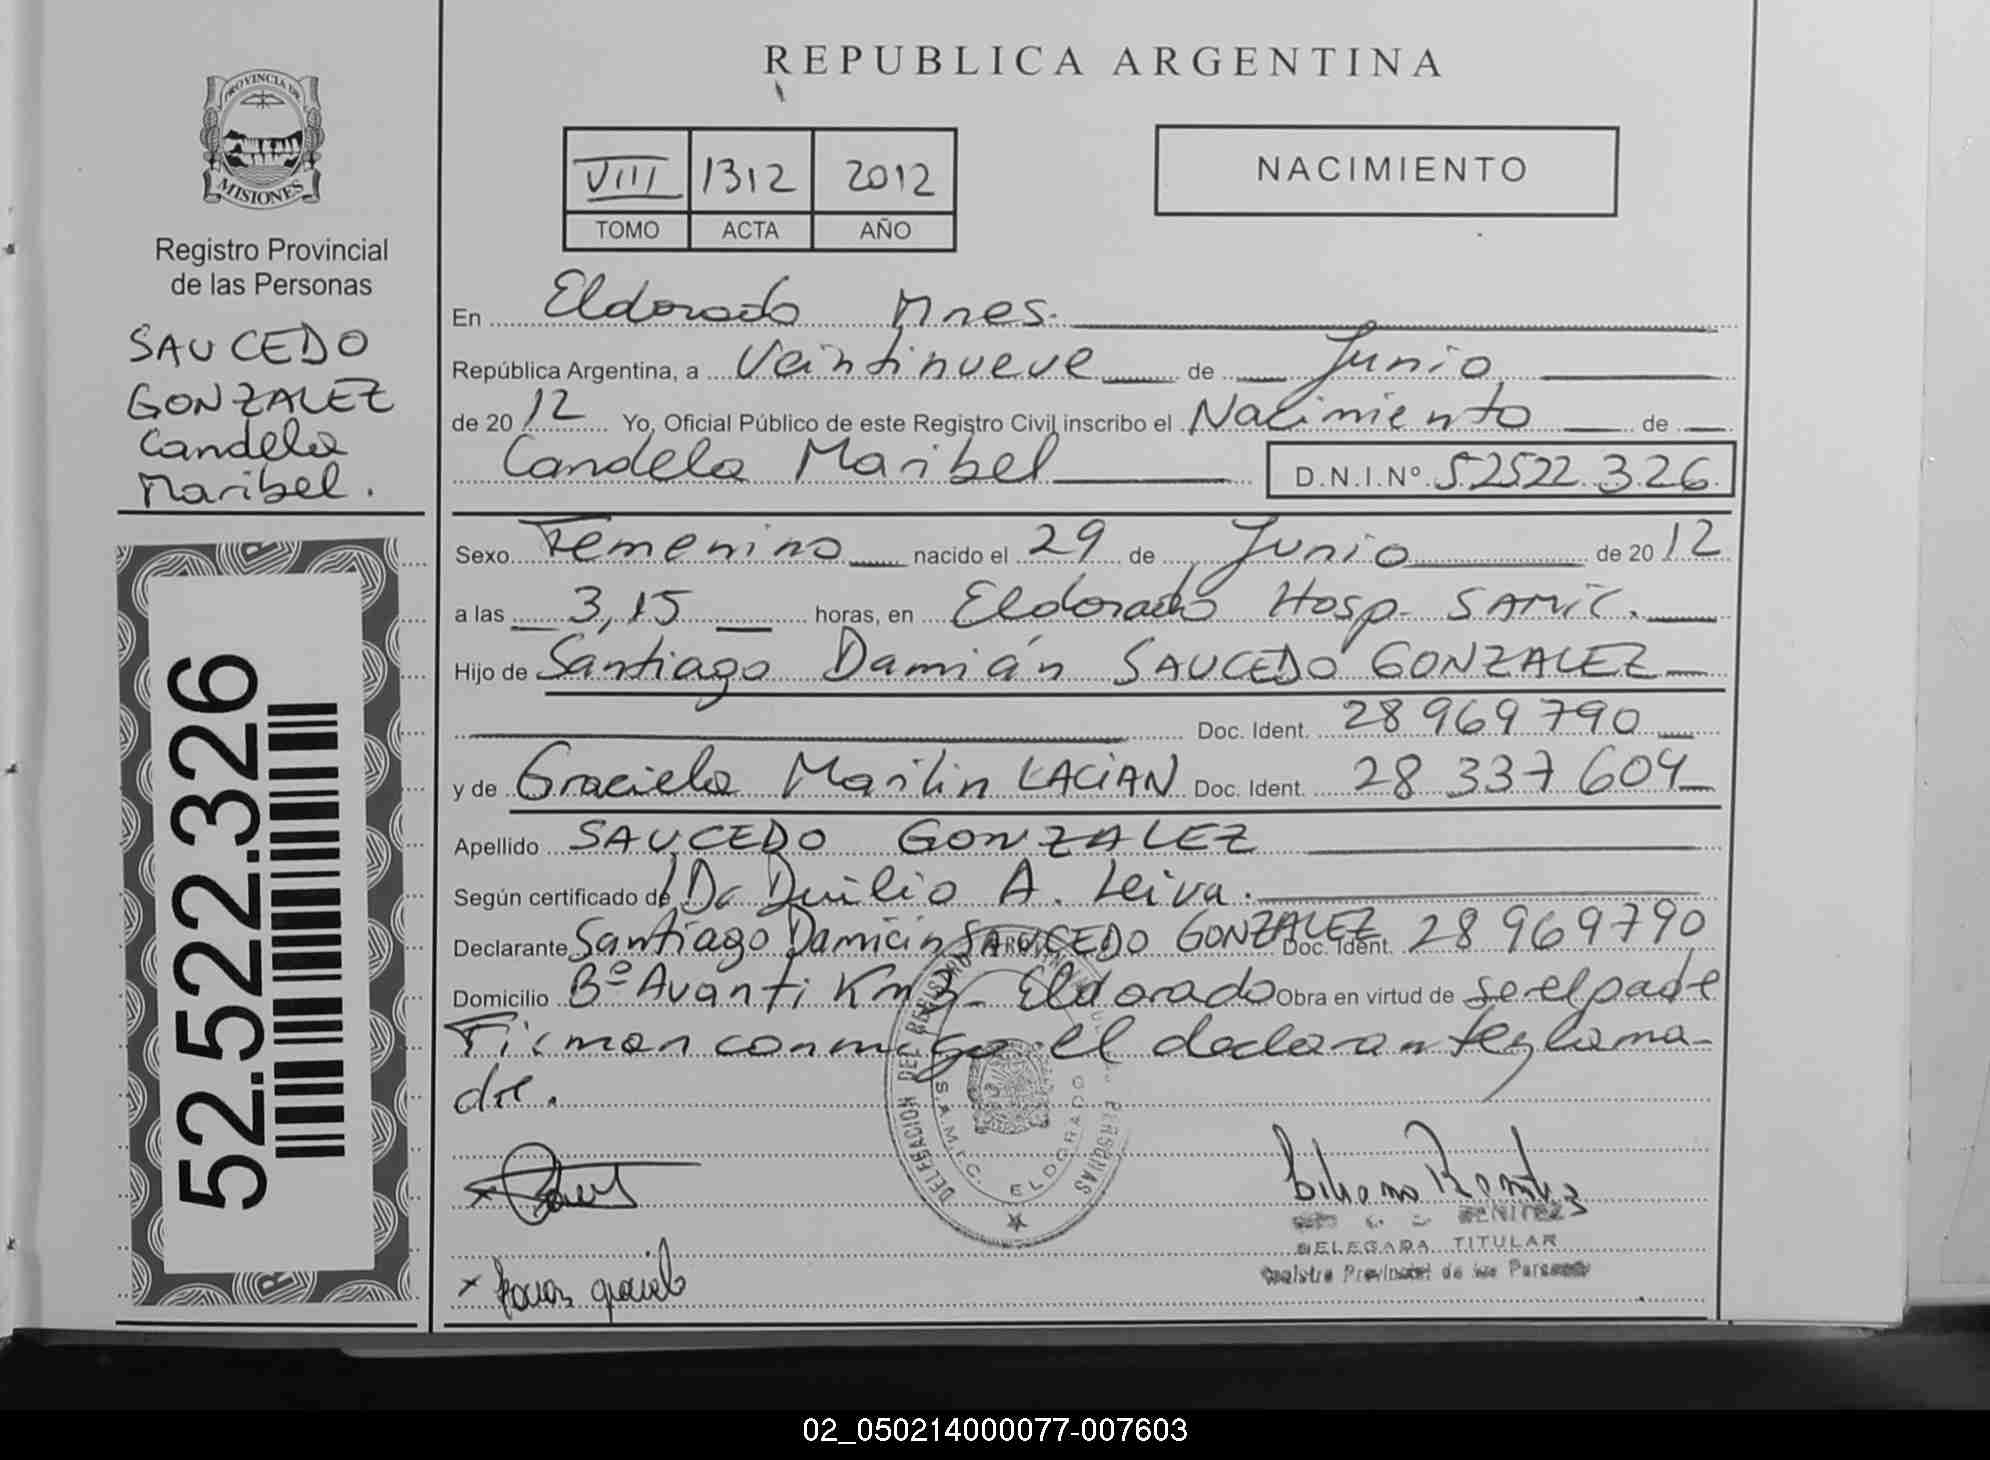 REPUBLICA ARGENTINA
PROVINCIA DE
MISIONES
Registro Provincial
de las Personas
SAUCEDO
GONZALEZ
Candela
Maribel.
52.522.326
VIII 1312 2012
TOMO ACTA AÑO
NACIMIENTO
En Eldorado Mnes.
República Argentina, a Veintinueve de Junio
de 20 12 Yo, Oficial Público de este Registro Civil inscribo el Nacimiento de
Candela Maribel D.N.I.Nº 52522326
Sexo Femenino nacido el 29 de Junio de 20 12
a las 3,15 horas, en Eldorado Hosp. SAMIC.
Hijo de Santiago Damián SAUCEDO GONZALEZ
Doc. Ident. 28969790
y de Graciela Marilin LACIAN Doc. Ident. 28337604
Apellido SAUCEDO GONZALEZ
Según certificado de Dr Duilio A. Leiva.
Declarante Santiago Damián SAUCEDO GONZALEZ Doc. Ident. 28969790
Domicilio Bº Avanti Km 3 - Eldorado Obra en virtud de ser el padre
Firman conmigo el declarante y la ma-
dre.
DELEGACION DEL REGISTRO PROVINCIAL PERSONAS
S.A.M.I.C. ELDORADO
BENITEZ
DELEGADA TITULAR
Registro Provincial de las Personas
02_050214000077-007603